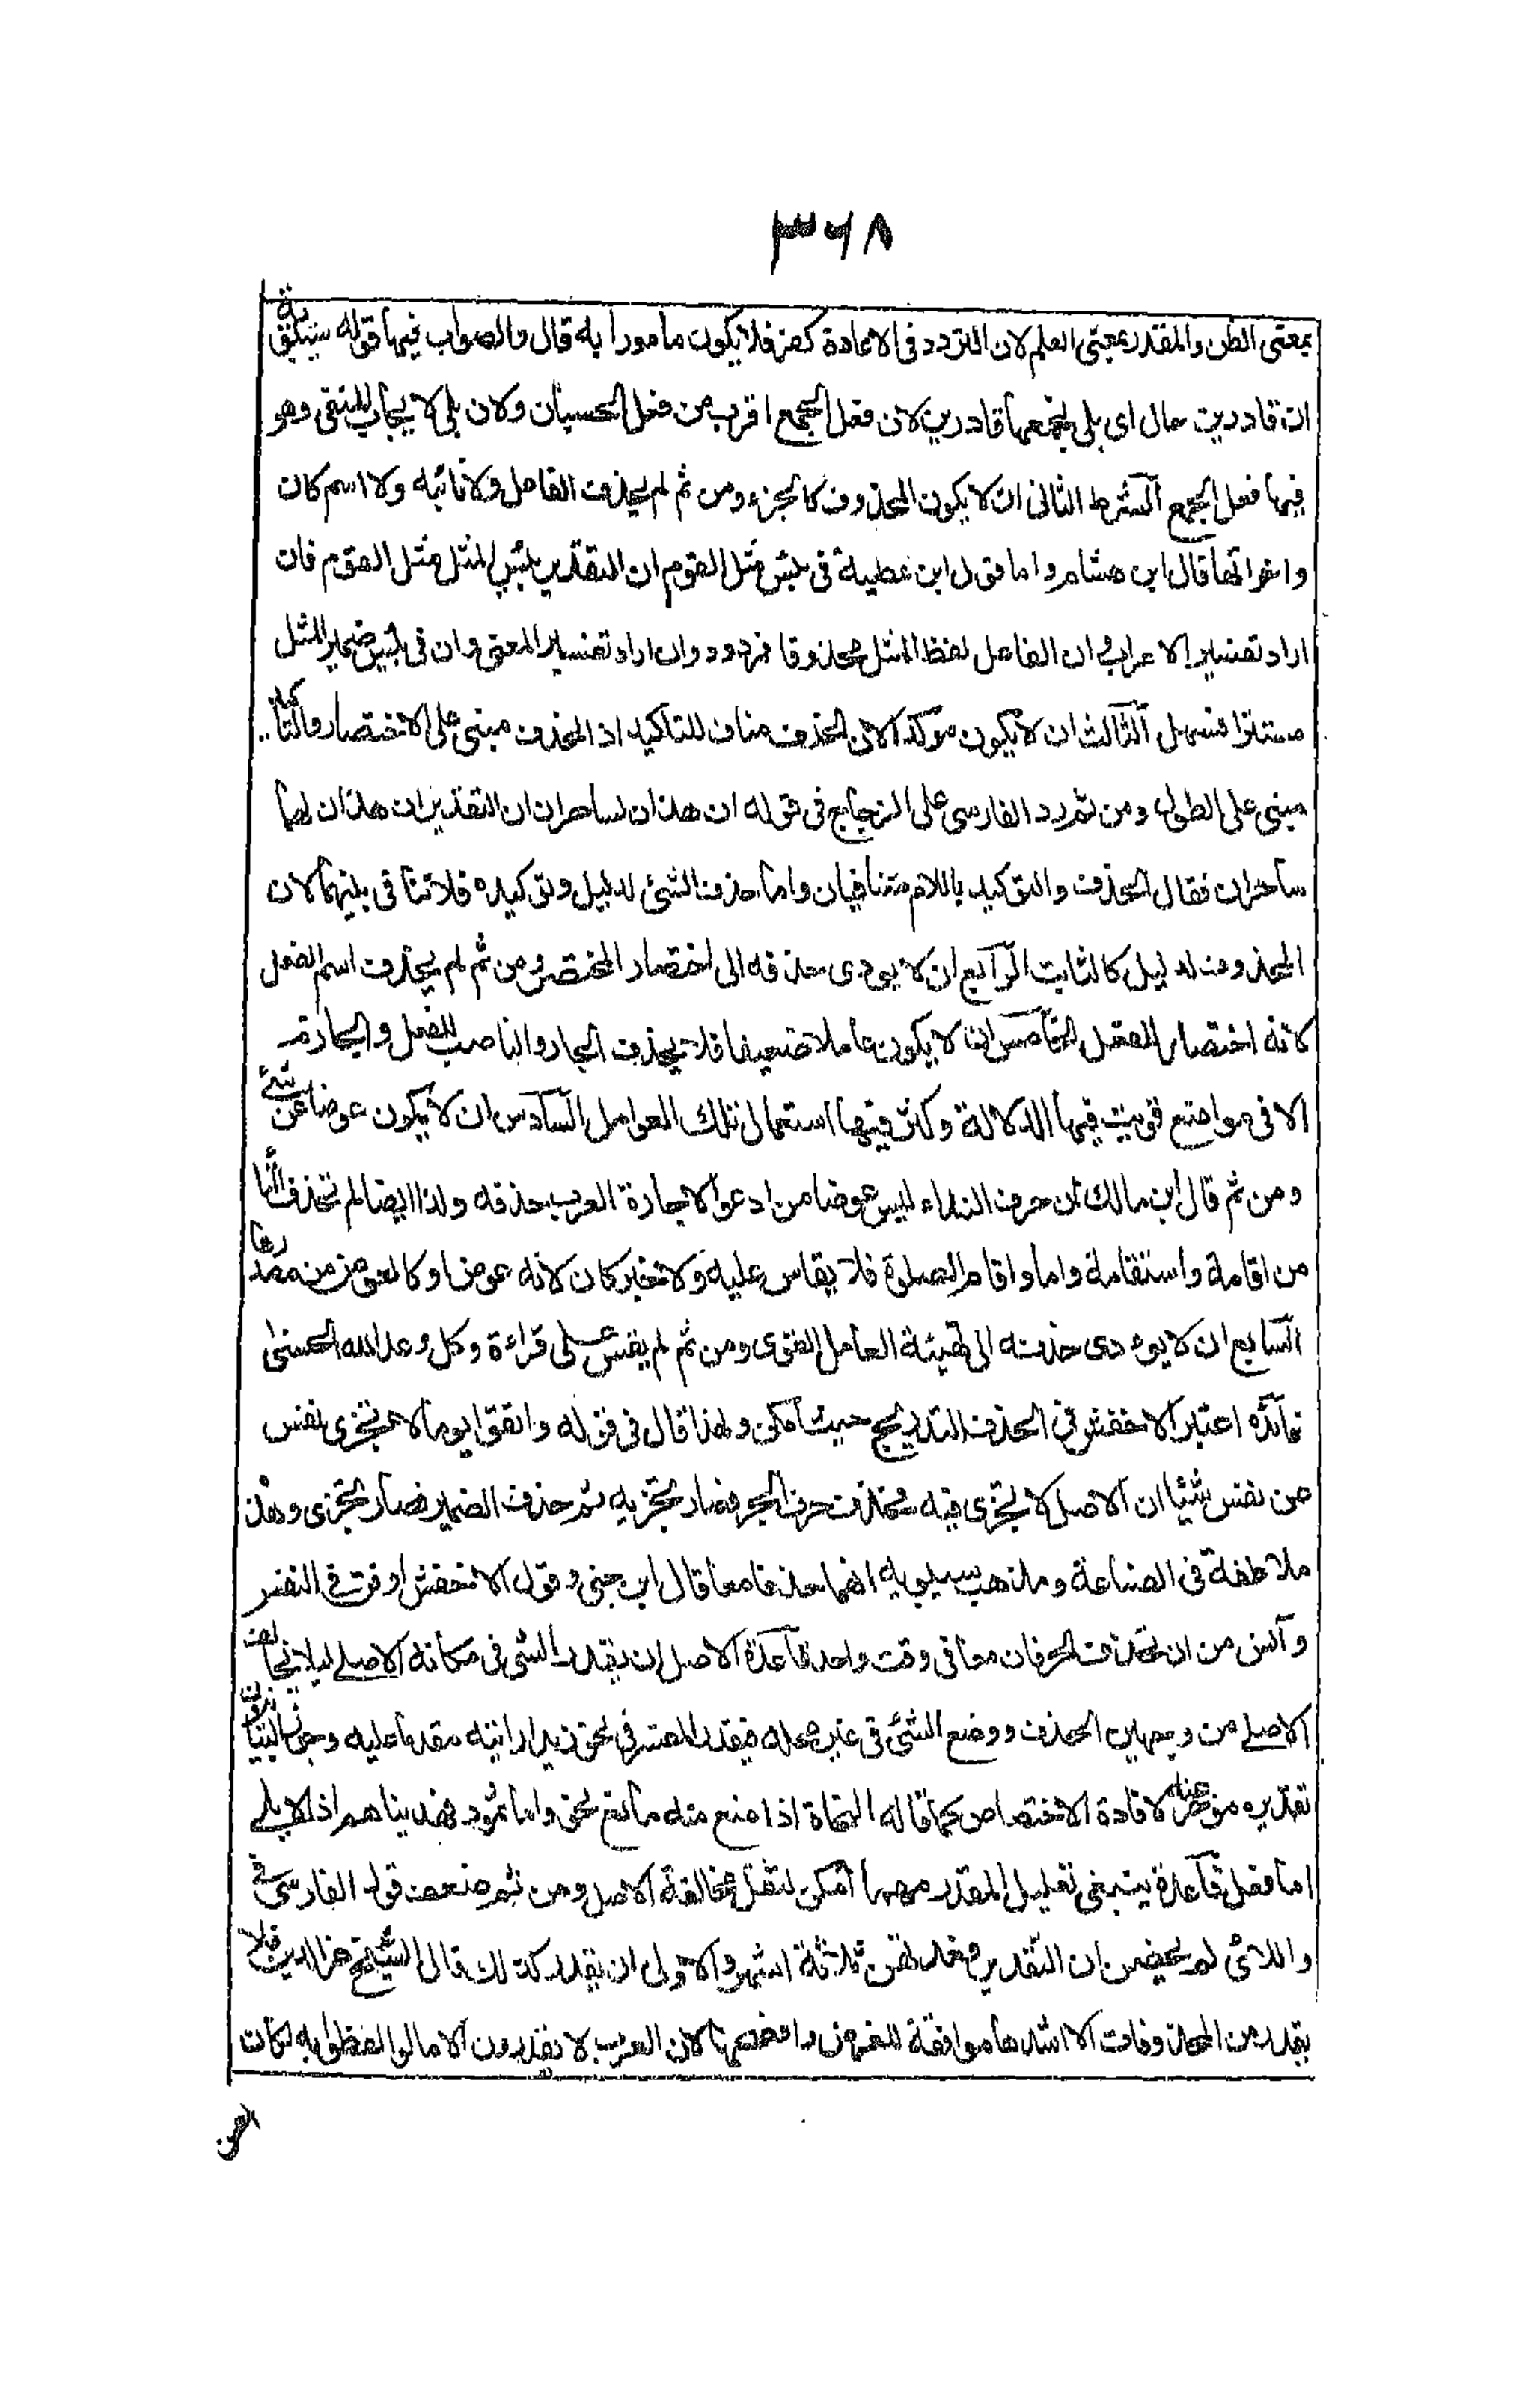 ۳۶۸
بمعنى الظن والمقدر بمعنى العلم لان التردد فى الاعادة كفر فلا يكون مامورا به قال والصواب فيها قوله سيبويه
ان قادرين حال اى بلى نجمعها قادرين لان فعل الجمع اقرب من فعل الحسبان ولان بلى لايجاب المنفى وهو
فيها فعل الجمع الشرط الثانى ان لا يكون المحذوف كالجزء ومن ثم لم يحذف الفاعل ولا نائبه ولا اسم كان
واخواتها قال ابن هشام واما قول ابن عطية فى بئس مثل القوم ان التقدير بئس المثل مثل القوم فان
اراد تفسير الاعراب وان الفاعل لفظ المثل محذوفا فمردود وان اراد تفسير المعنى وان فى بئس ضمير المثل
مستترا فسهل الثالث ان لا يكون موكدا لان الحذف مناف للتاكيد اذ الحذف مبنى على الاختصار والتاكيد
مبنى على الطول ومن ثم رد الفارسى على الزجاج فى قوله ان هذان لساحران ان التقدير ان هذان لهما
ساحران فقال الحذف والتوكيد باللام متنافيان واما حذف الشئ لدليل وتوكيده فلا تنافى بينهما لان
المحذوف لدليل كالثابت الرابع ان لا يودى حذفه الى اختصار المختصر ومن ثم لم يحذف اسم الفعل
لانه اختصار للفعل الخامس ان لا يكون عاملا ضعيفا فلا يحذف الجار والناصب للفعل والجازم
الا فى مواضع قويت فيها الدلالة وكثر فيها استعمال تلك العوامل السادس ان لا يكون عوضا عن شئ
ومن ثم قال ابن مالك ان حرف النداء ليس عوضا من ادعو لاجازة العرب حذفه ولذا ايضا لم تحذف التا
من اقامة واستقامة واما واقام الصلوة فلا يقاس عليه ولا خبر كان لانه عوض او كالعوض من مصدرها
السابع ان لا يودى حذفه الى تهيئة العامل القوى ومن ثم لم يقس على قراءة وكل وعد الله الحسنى
فائدة اعتبر الاخفش فى الحذف التدريج حيث امكن ولهذا قال فى قوله واتقوا يوما لا تجزى نفس
عن نفس شيئا ان الاصل لا تجزى فيه فحذف حرف الجر فصار تجزيه ثم حذف الضمير فصار تجزى وهذه
ملاطفة فى الصناعة ومذهب سيبويه انهما حذفا معا قال ابن جنى وقول الاخفش اوفق فى النفس
وآنس من ان يحذف الحرفان معا فى وقت واحد قاعدة الاصل ان يقدر الشئ فى مكانه الاصلى ليلا يخالف
الاصل من وجهين الحذف ووضع الشئ فى غير محله فيقدر المفسر فى نحو زيدا رايته مقدما عليه وجوز البيانيون
تقديره موخرا عنه لافادة الاختصاص كما قاله النحاة اذا منع منه مانع نحو واما ثمود فهديناهم اذ لا يلى
اما فعل قاعدة ينبغى تقليل المقدر مهما امكن لتقل مخالفة الاصل ومن ثم ضعف قول الفارسى فى
واللائى لم يحضن ان التقدير فعدتهن ثلاثة اشهر والاولى ان يقدر كذلك قال الشيخ عز الدين فلا
يقدر من المحذوفات الا اشدها موافقة للغرض وافصحها لان العرب لا يقدرون الا ما لو لفظوا به لكان